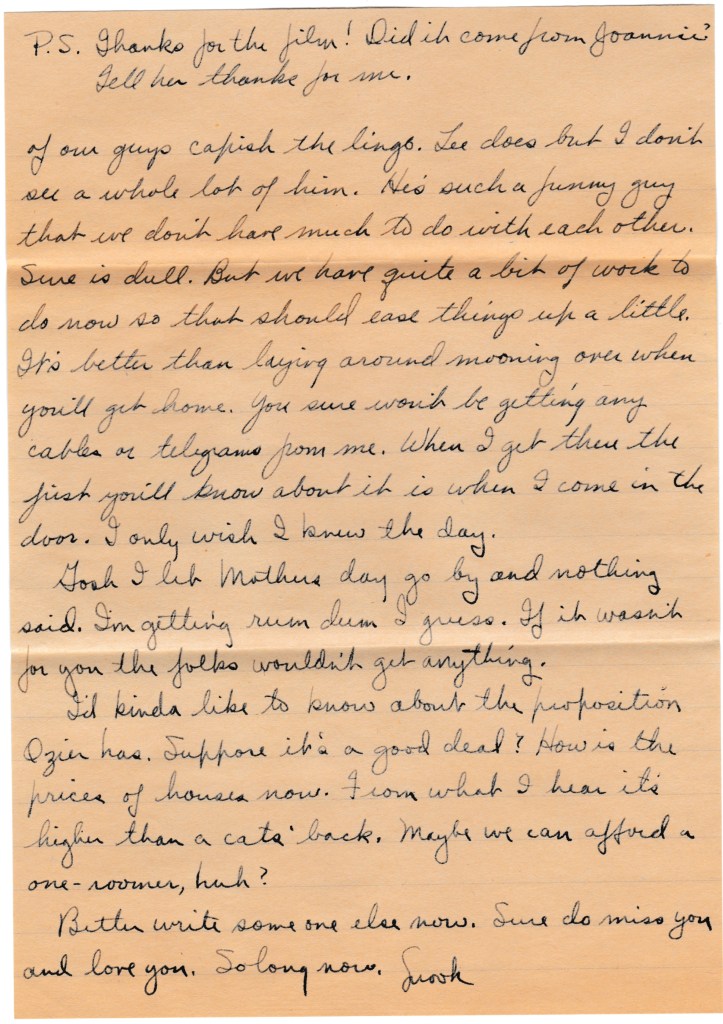 P.S. Thanks for the film! Did it come from Joannie?
Tell her thanks for me.
of our guys capish the lingo. Lee does but I don't
see a whole lot of him. He's such a funny guy
that we don't have much to do with each other.
Sure is dull. But we have quite a bit of work to
do now so that should ease things up a little.
It's better than laying around mooning over when
you'll get home. You sure won't be getting any
cables or telegrams from me. When I get there the
first you'll know about it is when I come in the
door. I only wish I knew the day.
Gosh I let Mothers day go by and nothing
said. I'm getting rum dum I guess. If it wasn't
for you the folks wouldn't get anything.
I'd kinda like to know about the proposition
Ozier has. Suppose it's a good deal? How is the
prices of houses now. From what I hear it's
higher than a cats' back. Maybe we can afford a
one-roomer, huh?
Better write some one else now. Sure do miss you
and love you. So long now. Snook